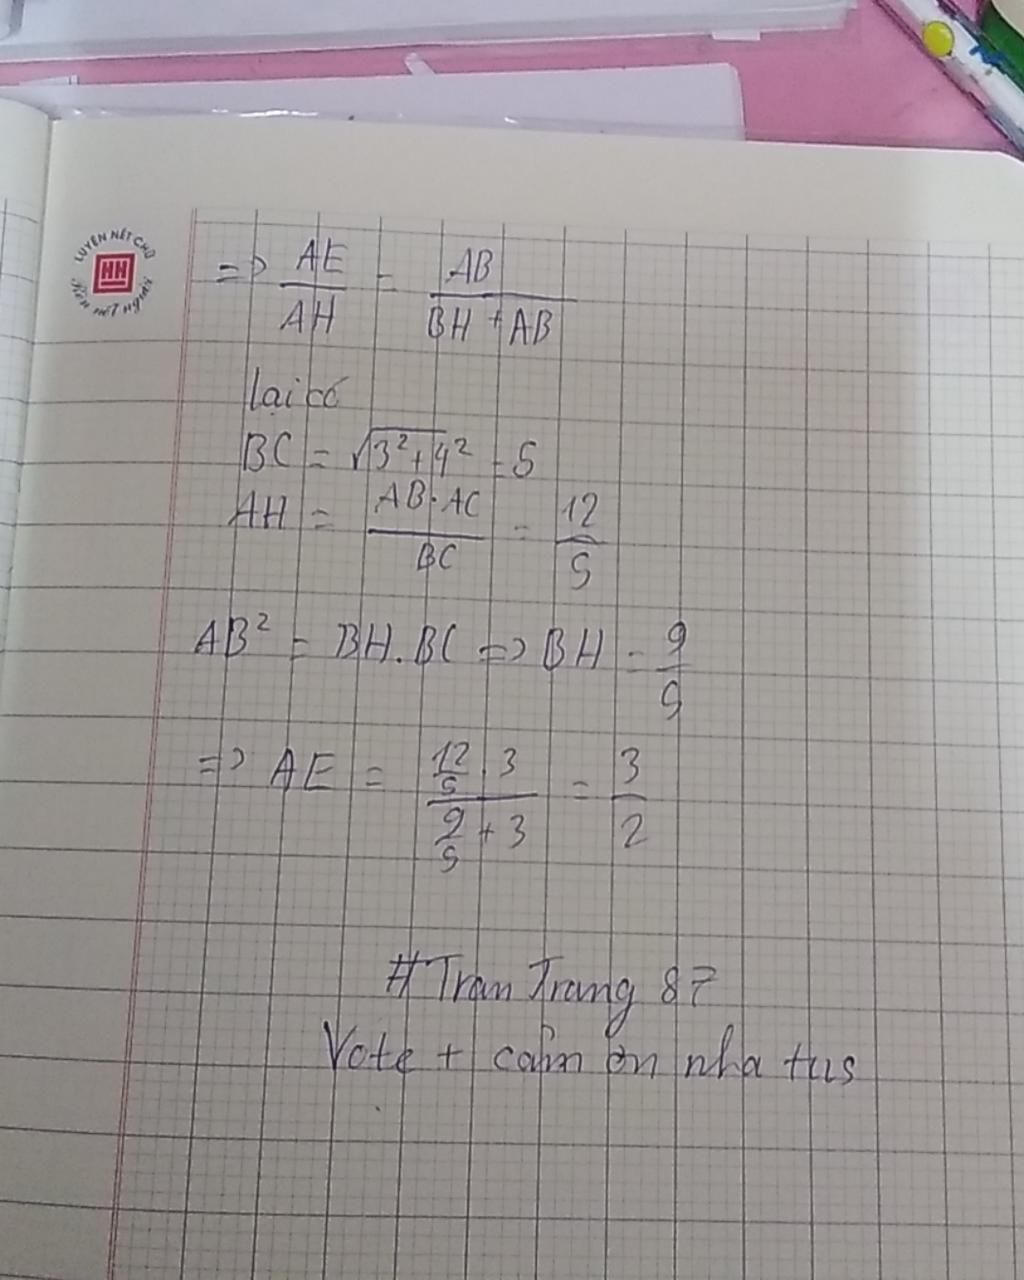 LUYỆN NÉT CHỮ
HH
Rèn nết người
=> AE/AH = AB/(BH + AB)
lại có
BC = √3² + 4² = 5
AH = AB . AC/BC = 12/5
AB² = BH . BC => BH = 9/5
=> AE = (12/5 . 3)/(9/5 + 3) = 3/2
# Tran Trang 87
Vote + cảm ơn nha tus